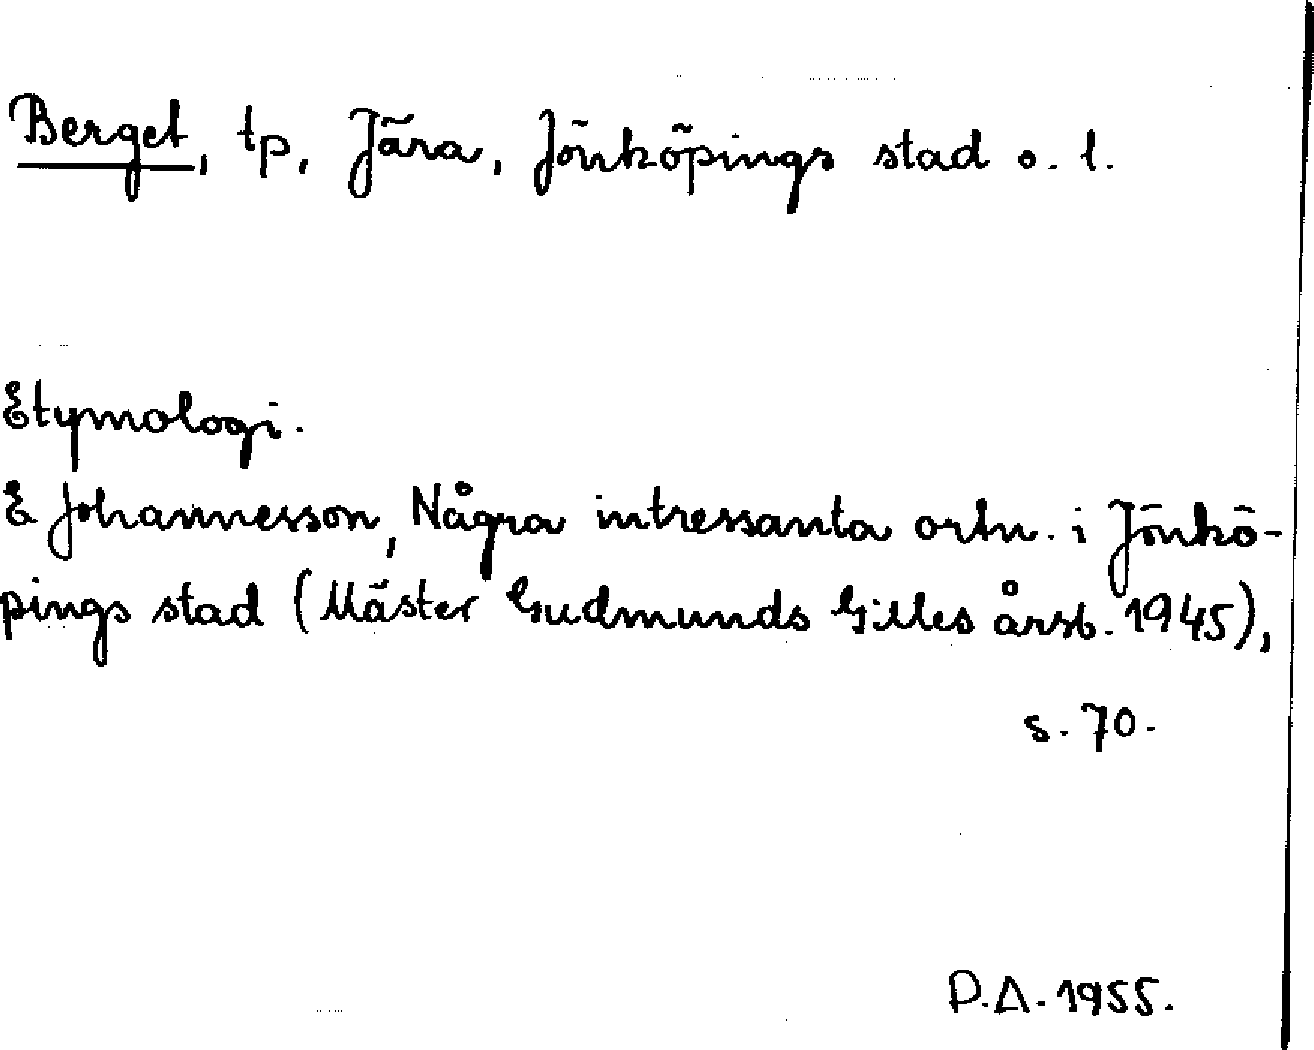 Berget, tp, Jära, Jönköpings stad o. l.
Etymologi.
E Johannesson, Några intressanta ortn. i Jönkö-
pings stad (Mäster Gudmunds Gilles årsb. 1945),
s. 70.
P.A. 1955.